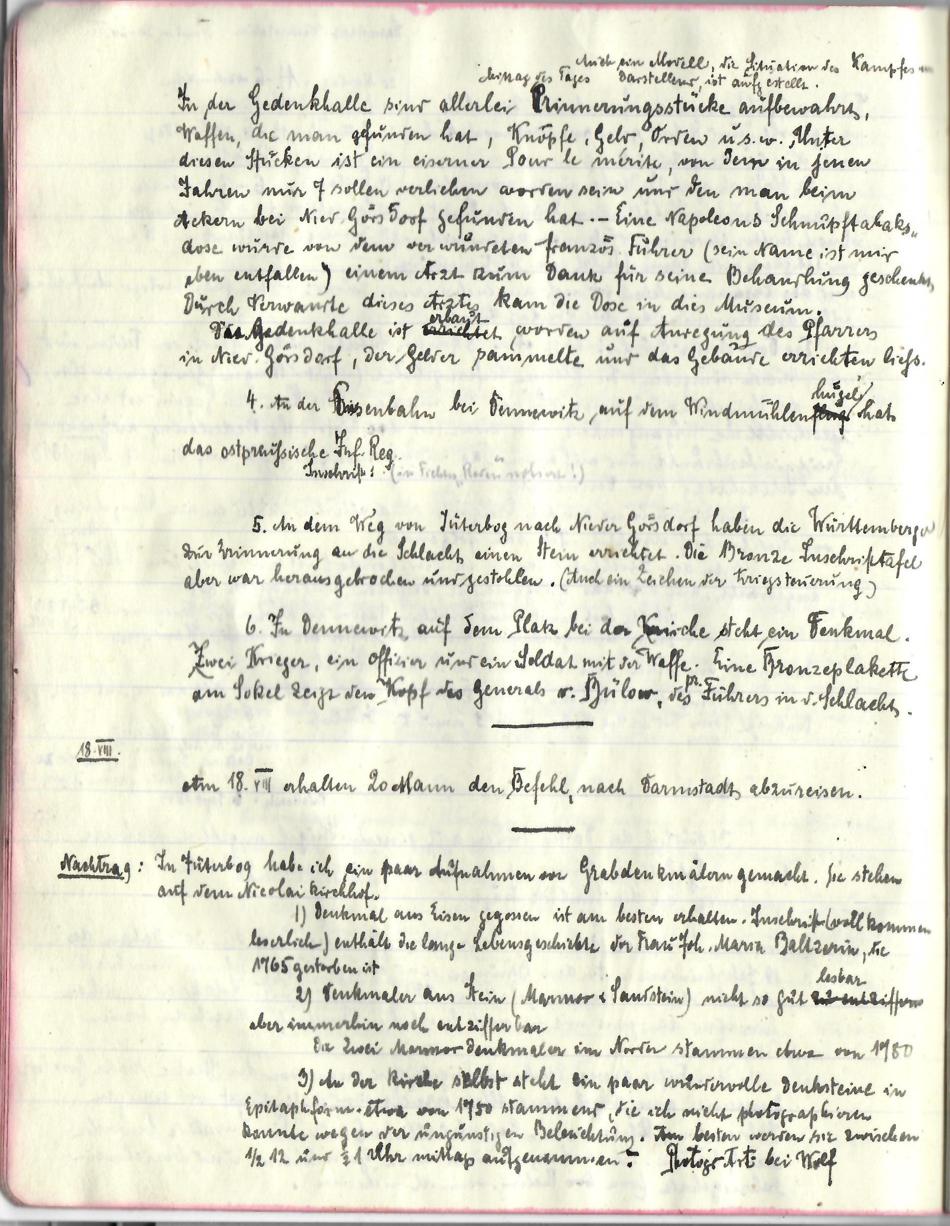 Auch ein Modell, die Situation des Kampfes am
Mittag des Tages darstellend, ist aufgestellt.
In der Gedenkhalle sind allerlei Erinnerungsstücke aufbewahrt,
Waffen, die man gefunden hat, Knöpfe, Geld, Orden u.s.w. Unter
diesen Stücken ist ein eiserner Pour le mérite, von dem in jenen
Jahren nur 7 sollen verliehen worden sein und den man beim
Ackern bei Nied. Görsdorf gefunden hat. – Eine Napoleons Schnupftabaks-
dose wurde von dem verwundeten französ. Führer (sein Name ist mir
eben entfallen) einem Arzt zum Dank für seine Behandlung geschenkt.
Durch Verwandte dieses Arztes kam die Dose in dies Museum.
erbaut
Die Gedenkhalle ist errichtet worden auf Anregung des Pfarrers
in Nied. Görsdorf, der Gelder sammelte und das Gebäude errichten liess.
hügel
4. An der Eisenbahn bei Dennewitz, auf dem Windmühlen hat
das ostpreussische Inf. Reg.
Inschrift: notiert!)
5. An dem Weg von Jüterbog nach Nieder Görsdorf haben die Württemberger
zur Erinnerung an die Schlacht einen Stein errichtet. Die Bronze Inschrifttafel
aber war herausgebrochen und gestohlen. (Auch ein Zeichen der Kriegsteuerung)
6. In Dennewitz auf dem Platz bei der Kirche steht ein Denkmal.
Zwei Krieger, ein Offizier und ein Soldat mit der Waffe. Eine Bronzeplakette
am Sokel zeigt den Kopf des Generals v. Bülow, des pr. Führers in d. Schlacht.
18.VIII.
Am 18. VIII erhalten 20 Mann den Befehl, nach Darmstadt abzureisen.
Nachtrag: In Jüterbog habe ich ein paar Aufnahmen von Grabdenkmälern gemacht. Sie stehen
auf dem Nicolaikirchhof.
1) Denkmal aus Eisen gegossen ist am besten erhalten. Inschrift (vollkommen
leserlich) enthält die lange Lebensgeschichte der Frau Joh. Maria Baltzerin, die
1765 gestorben ist
lesbar
2) Denkmäler aus Stein (Marmor & Sandstein) nicht so gut zu entziffern
aber immerhin noch entzifferbar
Die zwei Marmordenkmäler im Norden stammen etwa von 1780
3) An der Kirche selbst steht ein paar wundervolle Denksteine in
Epitaphform. Etwa von 1750 stammend, die ich nicht photographieren
konnte wegen der ungünstigen Beleuchtung. Am besten werden sie zwischen
1/2 12 und 1/2 1 Uhr mittag aufgenommen. bei Wolf